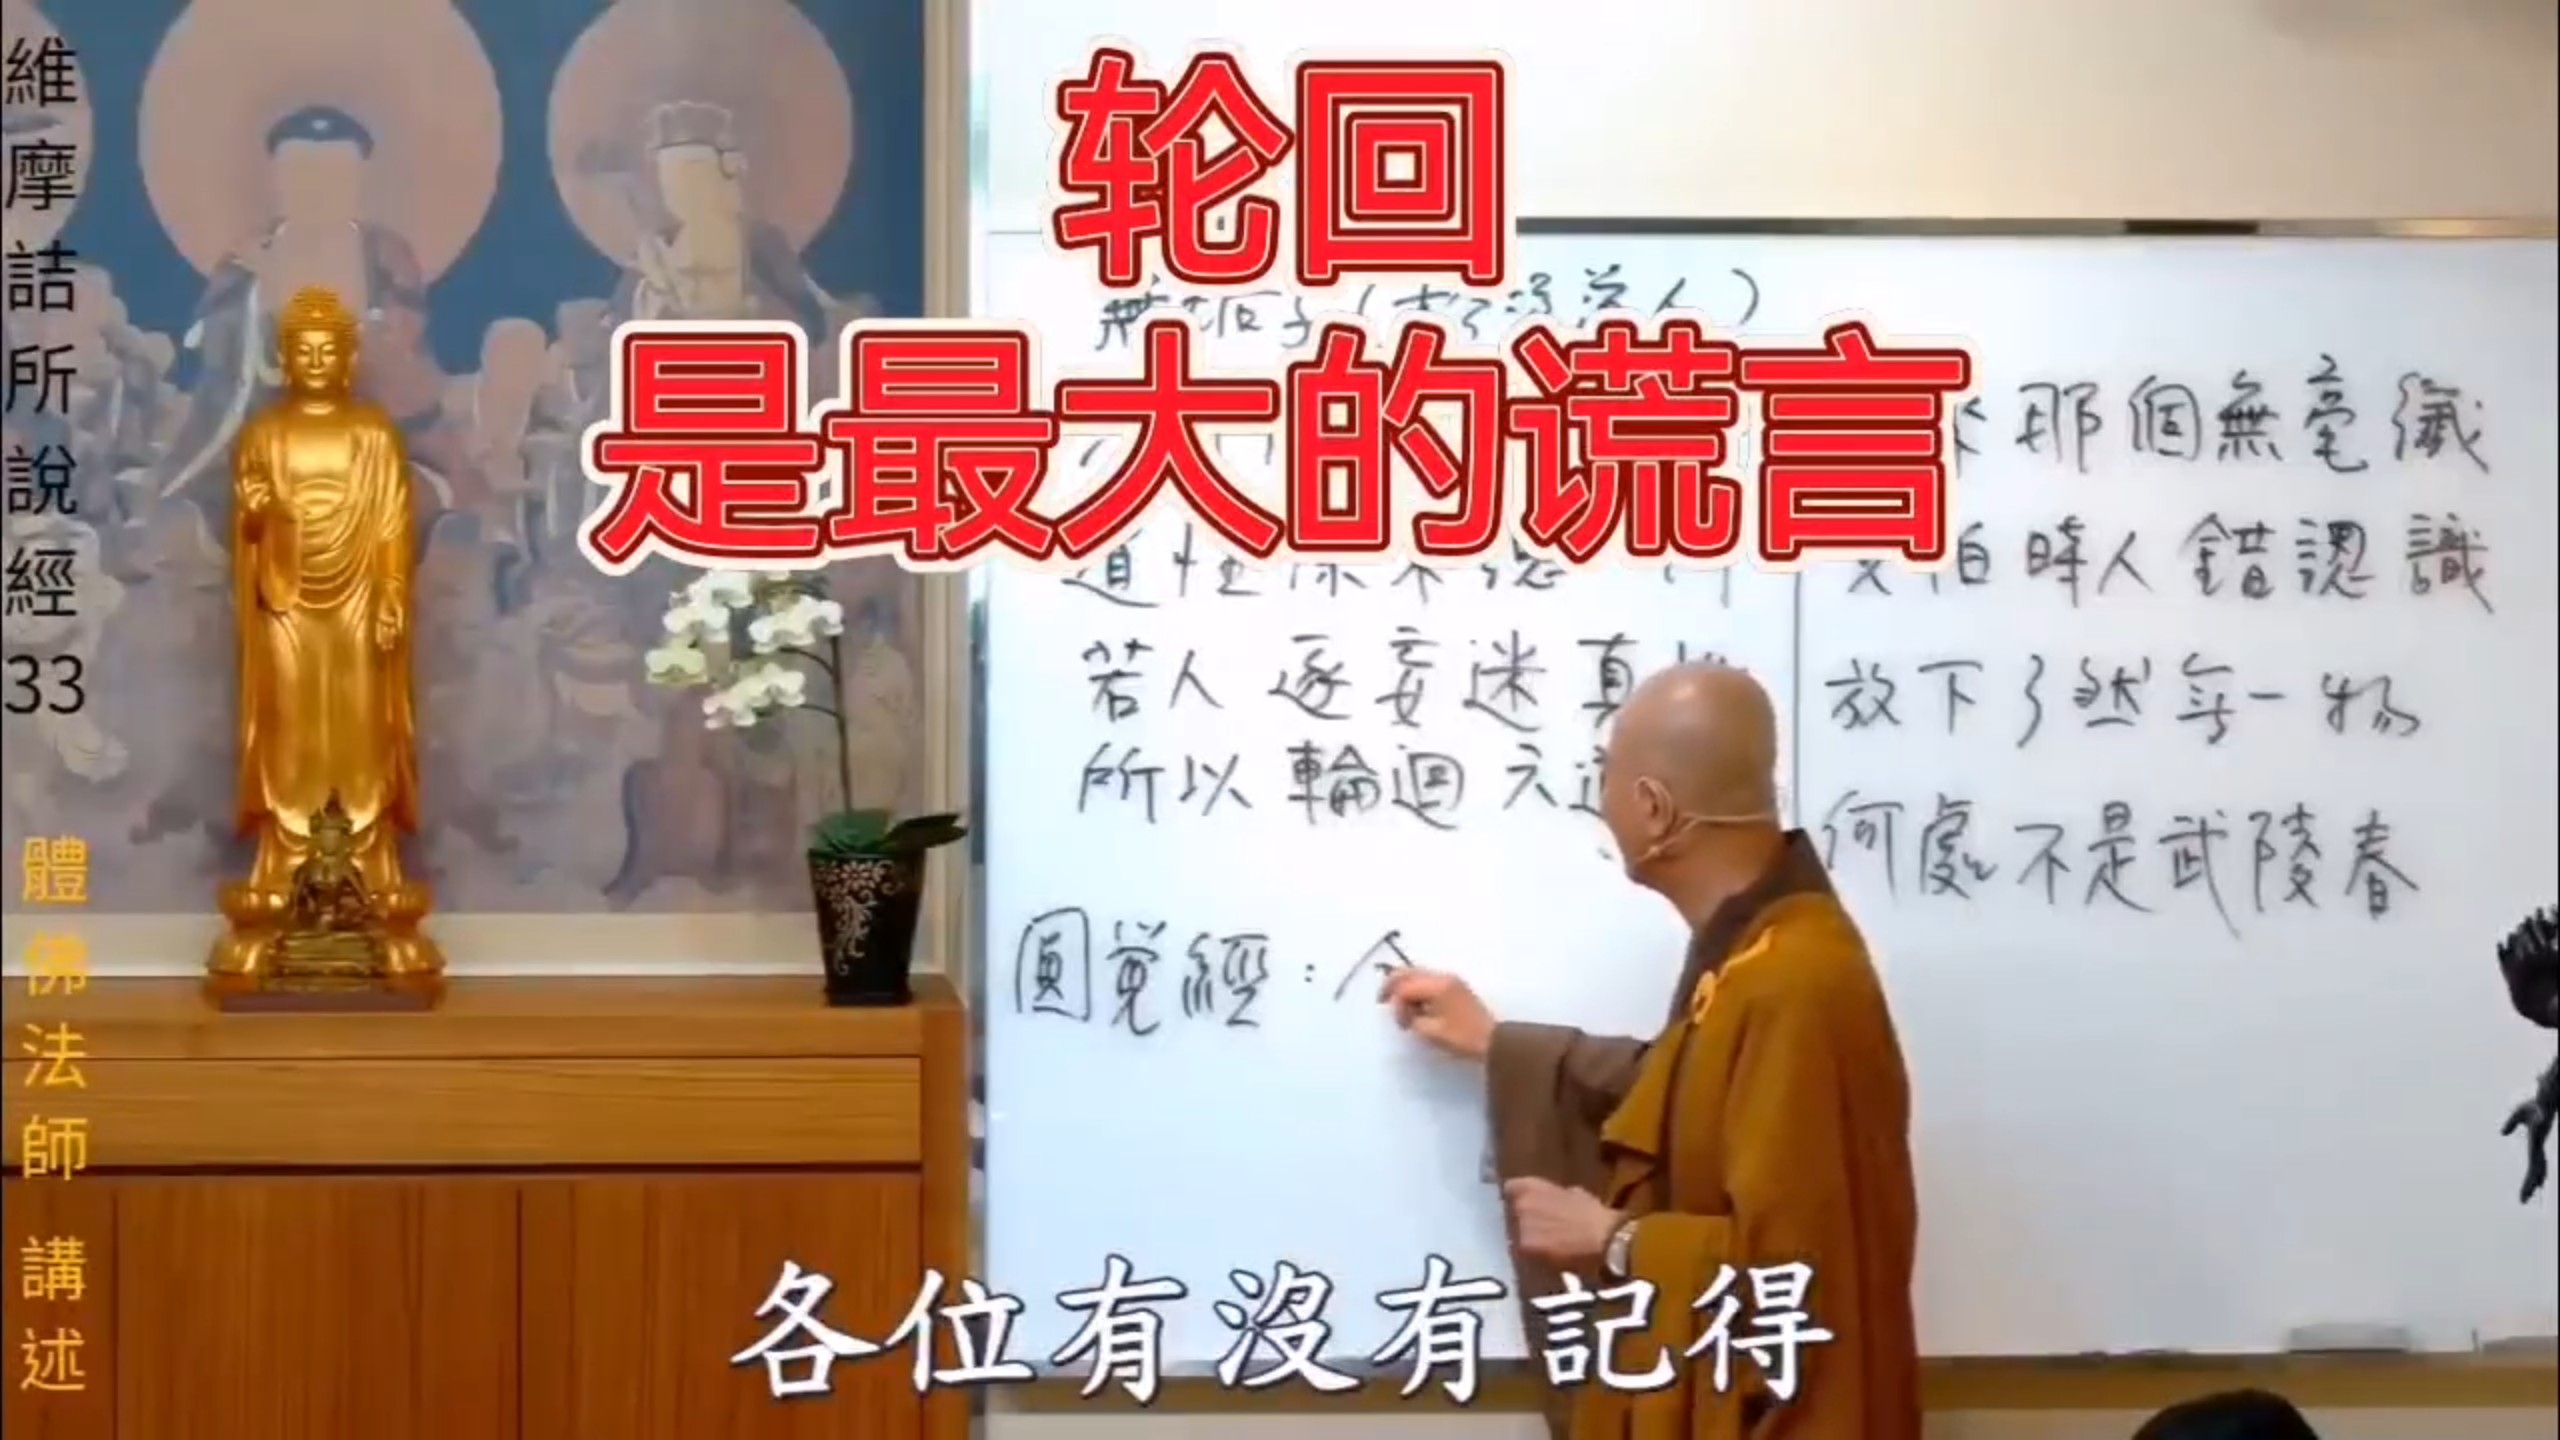 維摩詰所說經33
體佛法師 講述
轮回
是最大的谎言
若人逐妄迷真
所以輪迴六
圓覺經：
那個無毫纖
怕時人錯認識
放下了然無一物
何處不是武陵春
各位有沒有記得